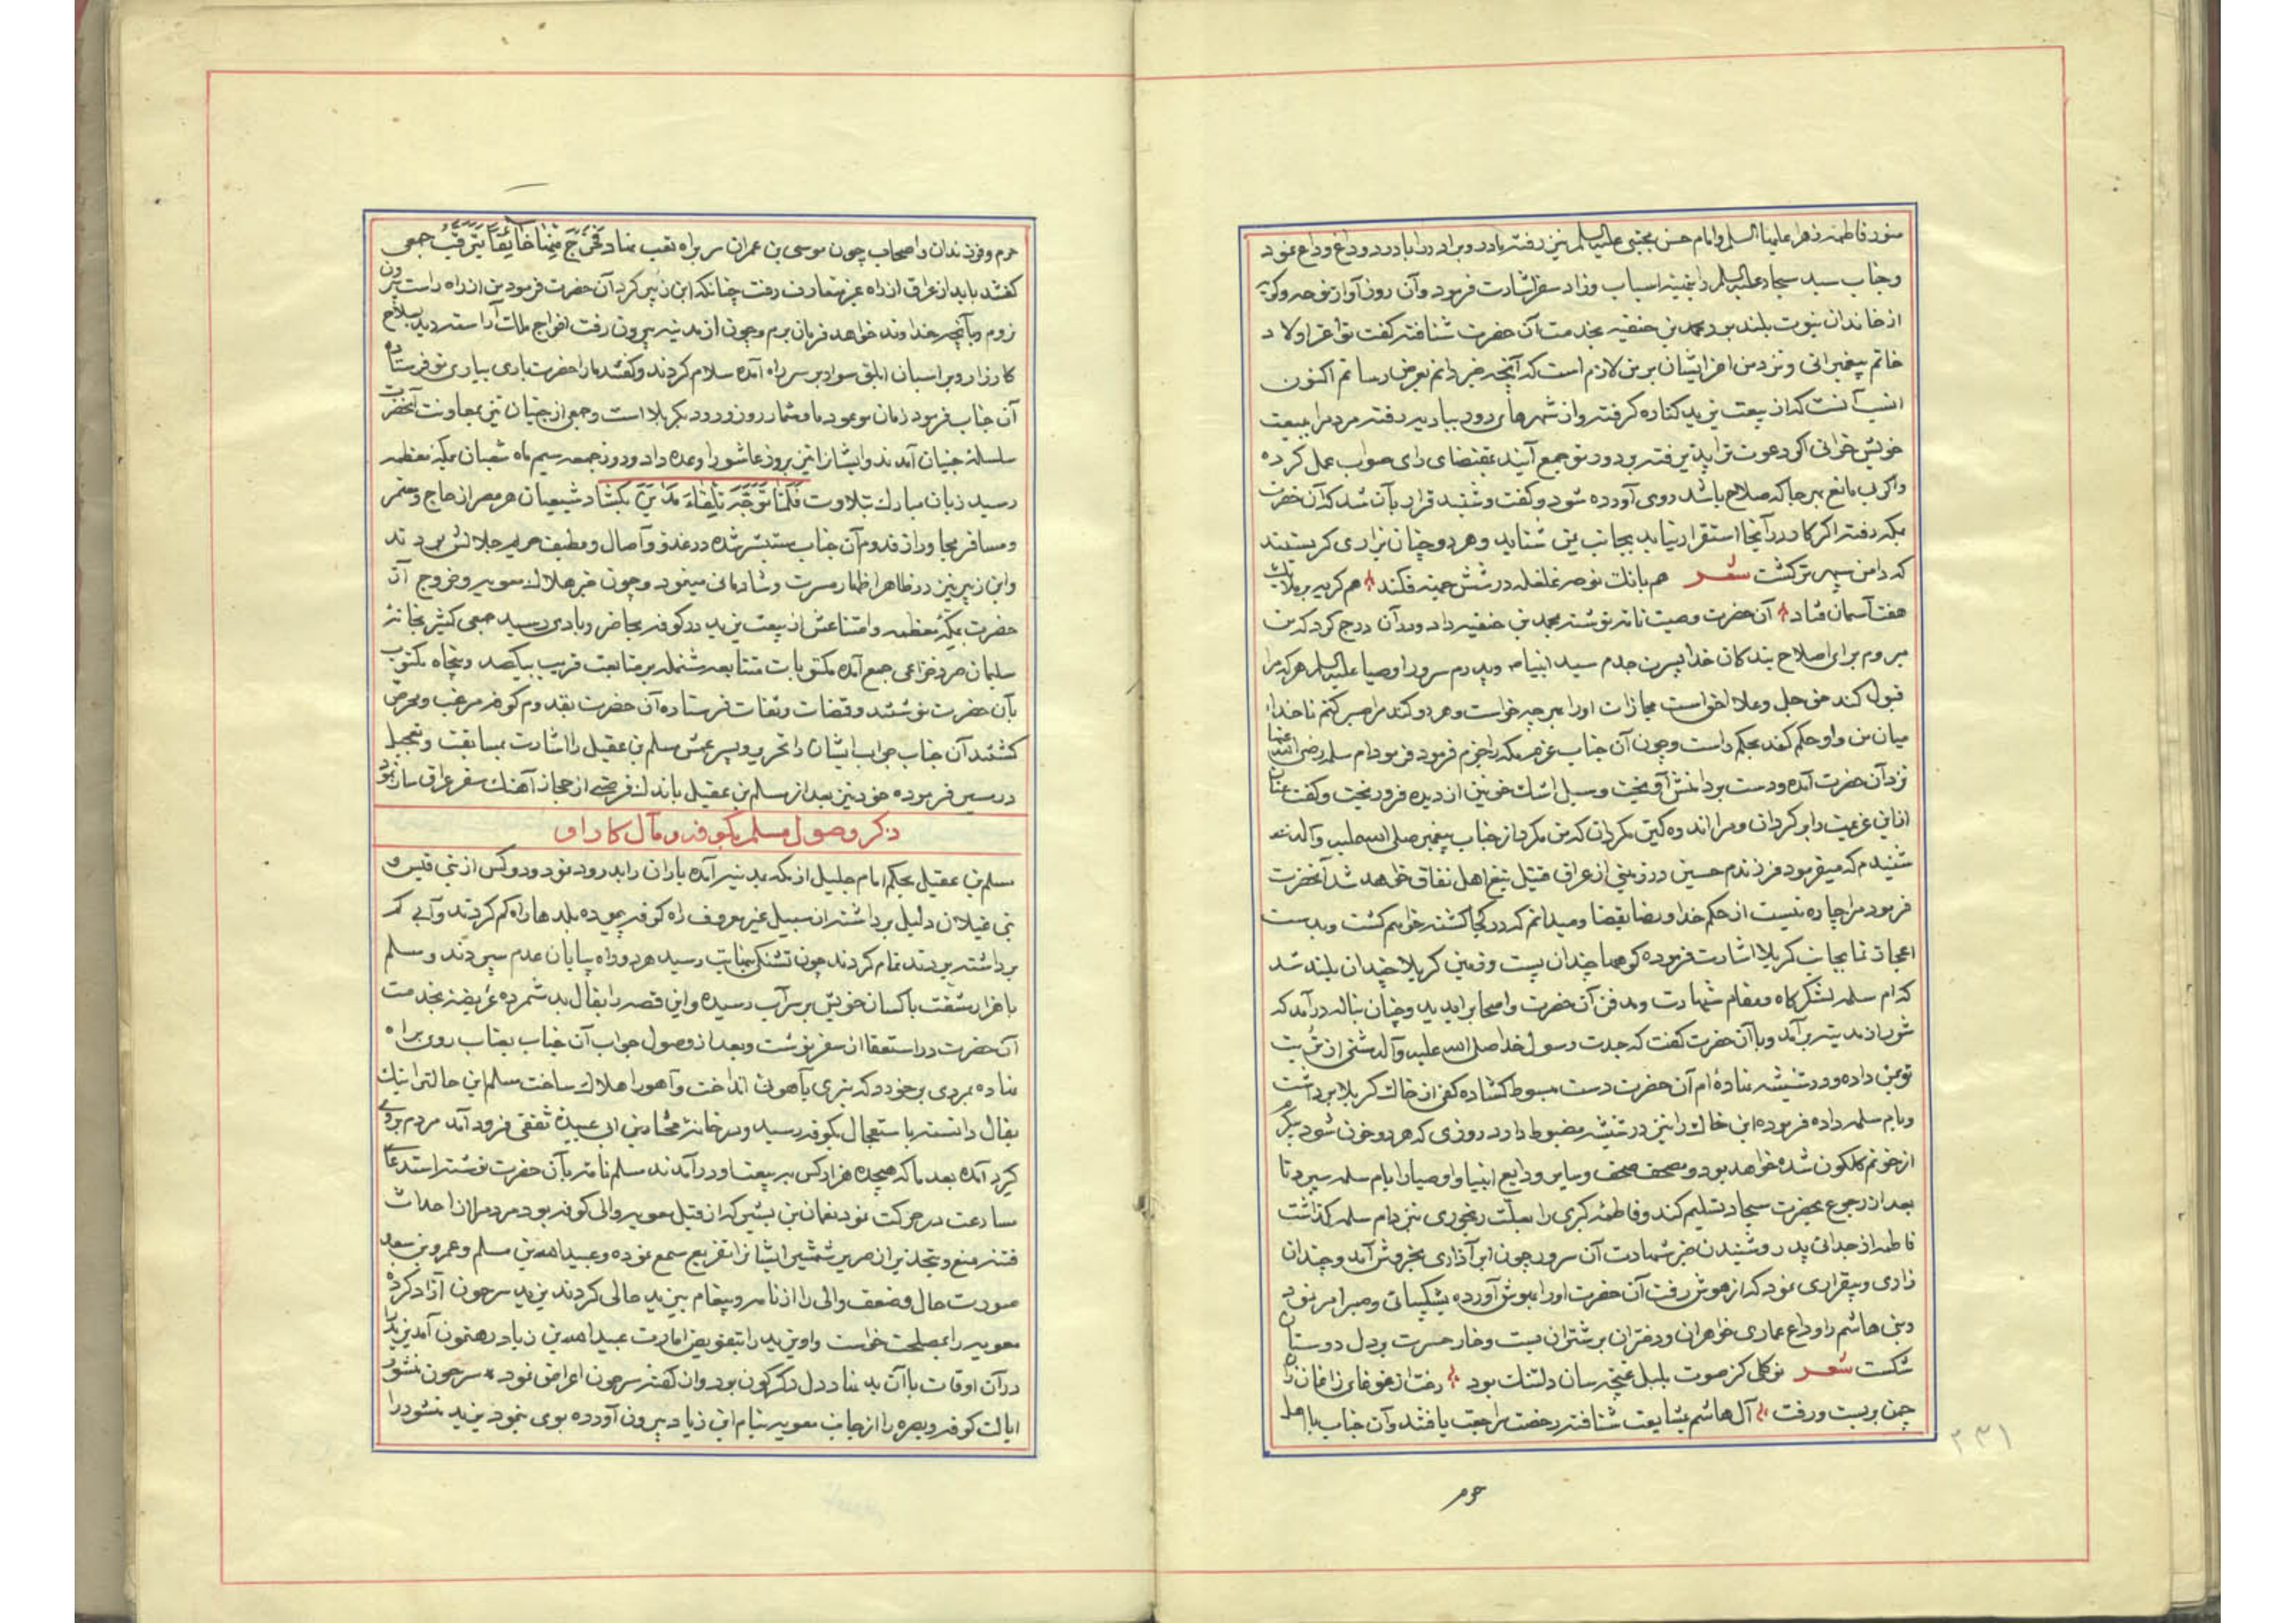 منور فاطمه زهرا علیها السلم و امام حسن مجتبی علیه السلم نیز رفته مادر و برادر را با درد و داغ وداع نمود
و جناب سید سجاد علیه السلم را بتهیئه اسباب و زاد سفر اشارت فرمود و آن روز آواز نوحه و کریه
از خاندان نبوت بلند بود محمد بن حنفیه بخدمت آن حضرت شتافته گفت تو اعز اولاد
خاتم پیغمبرانی و نزد من اعز ایشان بر من لازم است که آنچه خیر دانم بعرض رسانم اکنون
انسب آنست که از بیعت یزید کناره گرفته و از شهرهای دور ببادیه رفته مردم را ببیعت
خویش خوانی اگر دعوت ترا پذیرفته بر دور تو جمع آیند بمقتضای رای صواب عمل کرده
و اگر بی مانع هر جا که صلاح باشد روی آورده شود و گفت و شنید قرار بآن شد که آن حضرت
بمکه رفته اگر کار در آنجا استقرار نیابد بجانب یمن شتابد و هر دو چنان بزاری گریستند
که دامن سپهر تر گشت شعر هم بانگ نوحه غلغله در شش جهة فکند هم گریه بر ملایک
هفت آسمان فتاد آن حضرت وصیت نامه نوشته بمحمد بن حنفیه داد و در آن درج کرد که من
میروم برای اصلاح بندگان خدا بسیرت جدم سید انبیاء و پدرم سرور اوصیا علیه السلم هر که مرا
قبول کند حق جل و علا مجازات او را بهر چه خواست و هر که رد کند مرا صبر کنم تا خدا
میان من و او حکم کند بحکم راست و چون آن جناب عزم مکه را جزم فرمود ام سلمه رضی الله عنها
نزد آن حضرت آمده و دست بر دامنش آویخت و سیل اشک خونین از دیده فرو ریخت و گفت عنان
از این عزیمت را برگردان و مرا اندوهگین مگردان که من مکرر از جناب پیغمبر صلی الله علیه و آله
شنیدم که میفرمود فرزندم حسین در زمینی از عراق قتیل تیغ اهل نفاق خواهد شد آنحضرت
فرمود مرا چاره نیست از حکم خدا و رضا بقضا و میدانم که در کجا کشته خواهم گشت و بدست
اعجاز نما بجانب کربلا اشارت فرموده کوهها چندان پست و زمین کربلا چندان بلند شد
که ام سلمه لشکرگاه و مقام شهادت و مدفن آن حضرت و اصحاب را بدید و چنان بناله در آمد که
شور از مدینه بر آمد و با آن حضرت گفت که جدت رسول خدا صلی الله علیه و آله مشتی از تربت
تو بمن داده و در شیشه نهاده ام آن حضرت دست مبسوط گشاده کفی از خاک کربلا برداشت
و بام سلمه داده فرموده این خاک را نیز در شیشه مضبوط دارد روزی که هر دو خون شود پیکرم
از خونم گلگون شده خواهد بود و مصحف و صحف و سایر ودایع انبیا و اوصیا را بام سلمه سپرد تا
بعد از رجوع بحضرت سجاد تسلیم کند و فاطمه کبری را بعلت رنجوری نزد ام سلمه گذاشت
فاطمه از جدائی پدر و شنیدن خبر شهادت آن سرور چون ابر آذاری بخروش آمد و چندان
زاری و بیقراری نمود که از هوش رفت آن حضرت او را بهوش آورده بشکیبائی و صبر امر نمود
و بنی هاشم را وداع عماری خواهران و دختران بر شتران بست و خار حسرت بر دل دوستان
شکست شعر نو گلی کز صوت بلبل غنچه سان دلتنگ بود رفت از غوغای زاغان زان
چمن بر بست و رفت آل هاشم بمشایعت شتافته رخصت مراجعت یافتند و آن جناب با اهل
حرم
۲۳۱
حرم و فرزندان و اصحاب چون موسی بن عمران سر براه تعب نهاد فَخَرَجَ مِنْها خائِفاً یَتَرَقَّبُ جمعی
گفتند باید از عراق از راه غیر متعارف رفت چنانکه ابن زبیر کرد آن حضرت فرمود من از راه راست بیرون
نروم و بآنچه خداوند خواهد فرمان برم و چون از مدینه بیرون رفت افواج ملائک آراسته دید بسلاح
کارزار و بر اسبان ابلق سوار بر سر راه آمده سلام کردند و گفتند ما را حضرت باری بیاری تو فرستاده
آن جناب فرمود زمان موعود ما و شما روز ورود بکربلا است و جمعی از جنیان نیز بمعاونت آنحضرت
سلسلهٔ جنبان آمدند و ایشانرا نیز بروز عاشورا وعده داد و روز جمعه سیم ماه شعبان بمکه معظمه
رسید زبان مبارک بتلاوت فَلَمَّا تَوَجَّهَ تِلْقاءَ مَدْیَنَ بگشاد شیعیان هر مصر از حاج و معتمر
و مسافر و مجاور از قدوم آن جناب مستبشر شده در غدو و آصال و مطیف حریم جلالش بودند
و ابن زبیر نیز در ظاهر اظهار مسرت و شادمانی مینمود و چون خبر هلاک معویه و خروج آن
حضرت بمکهٔ معظمه و امتناعش از بیعت یزید در کوفه بحاضر و بادی رسید جمعی کثیر بخانهٔ
سلیمان صرد خزاعی جمع آمده مکتوبات متتابعه مشتمله بر متابعت قریب بیکصد و پنجاه مکتوب
بآن حضرت نوشتند و قضات و ثقات فرستاده آن حضرت بقدوم کوفه مرغب و محرض
گشتند آن جناب جواب ایشان را تحریر و پسر عمش مسلم بن عقیل را اشارت بمسابقت و تعجیل
در سیر فرموده خود نیز بعد از مسلم بن عقیل باندک فرصتی از حجاز آهنگ سفر عراق ساز نمود
ذکر وصول مسلم بکوفه و مآل کار او
مسلم بن عقیل بحکم امام جلیل از مکه بمدینه آمده یاران را بدرود نمود و دو کس از بنی قیس و
بنی غیلان دلیل برداشته از سبیل غیر معروف راه کوفه پیموده بلدها راه گم کردند و آبی که
برداشته بودند تمام کردند چون تشنگی بنهایت رسید هر دو راه بپایان عدم سپردند و مسلم
با هزار مشقت با کسان خویش بر سر آب رسیده و این قصه را بفال بد شمرده عریضه بخدمت
آن حضرت در استعفا از سفر نوشت و بعد از وصول جواب آن جناب بعتاب روی براه
نهاده بمردی برخورد که تیری بآهوئی انداخت و آهو را هلاک ساخت مسلم این حالت را نیک
بفال دانسته باستعجال بکوفه رسید و در خانهٔ مختار بن ابی عبیدهٔ ثقفی فرود آمد مردم بر وی
گرد آمده بعد ما که هیجده هزار کس به بیعت او در آمدند مسلم نامه بآن حضرت نوشته استدعای
مسارعت در حرکت نمود نعمان بن بشیر که از قبل معویه والی کوفه بود مردم را از احداث
فتنه منع و تحذیر از ضرب شمشیر ایشانرا تقریع سمع نموده و عبدالله بن مسلم و عمرو بن سعد
صورت حال و ضعف والی را از نامه و پیغام بیزید حالی کردند یزید سرجون آزاد کرده
معویه را بمصلحت خواست و او یزید را بتفویض امارت عبیدالله بن زیاد رهنمون آمد یزید را
در آن اوقات با آن پلید دل دگرگون بود و از گفتهٔ سرجون اعراض نمود سرجون منشور
ایالت کوفه و بصره را از جانب معویه بنام ابن زیاد بیرون آورده بوی بنمود یزید منشور را